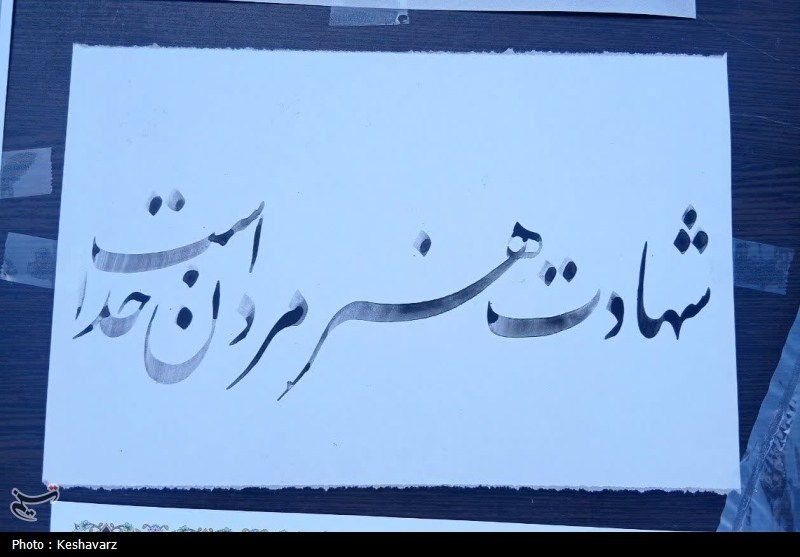 شهادت هنر مردان خداست
تسنیم
Photo : Keshavarz